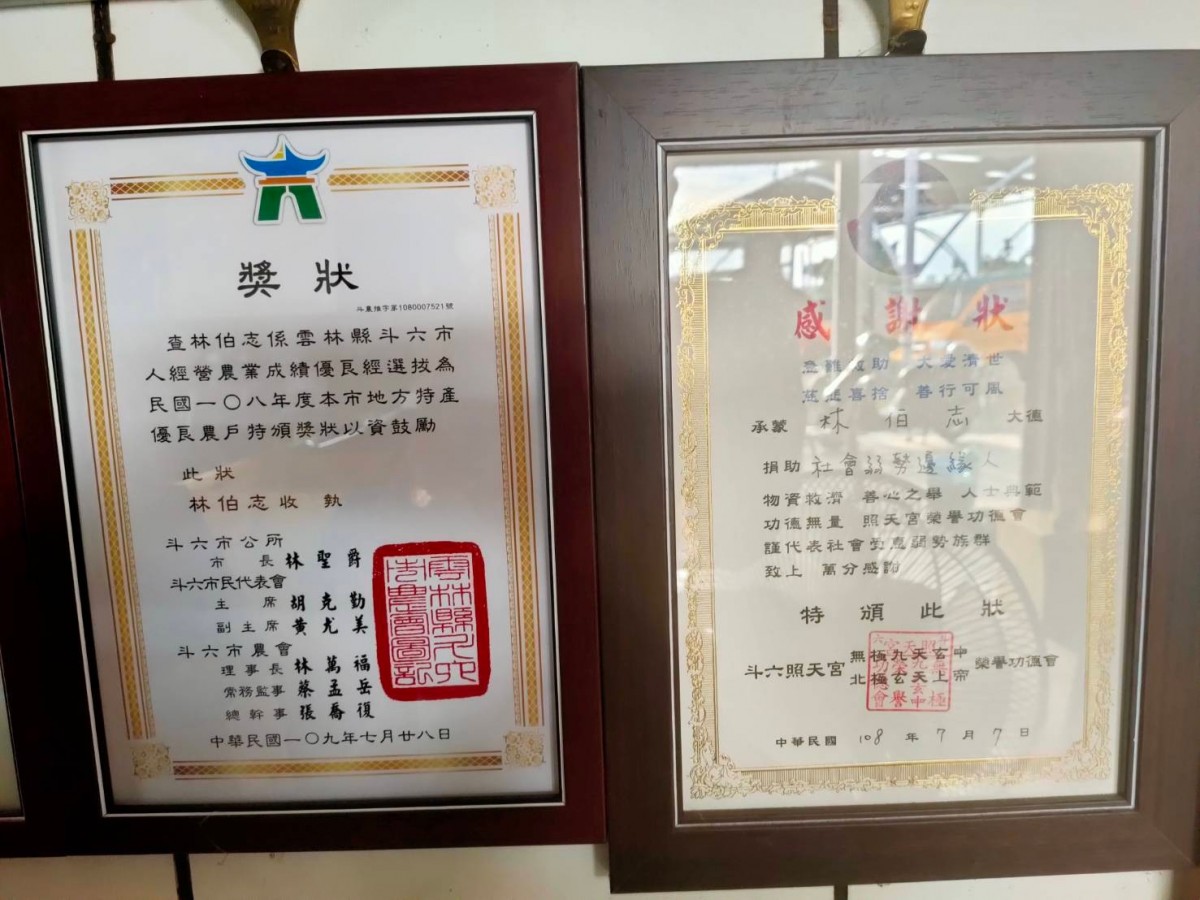 獎狀
斗農推字第1080007521號
查林伯志係雲林縣斗六市
人經營農業成績優良經選拔為
民國一〇八年度本市地方特產
優良農戶特頒獎狀以資鼓勵
此狀
林伯志收執
斗六市公所
市長林聖爵
斗六市民代表會
主席胡克勤
副主席黃尤美
斗六市農會
理事長林萬福
常務監事蔡孟岳
總幹事張喬復
中華民國一〇九年七月廿八日
感謝狀
急難救助 大愛濟世
慈悲喜捨 善行可風
承蒙 林伯志 大德
捐助 社會弱勢邊緣人
物資救濟 善心之舉 人士典範
功德無量 照天宮榮譽功德會
謹代表社會受惠弱勢族群
致上 萬分感謝
特頒此狀
斗六照天宮 無極九天玄中 北極玄天上帝 榮譽功德會
中華民國 108 年 7 月 7 日